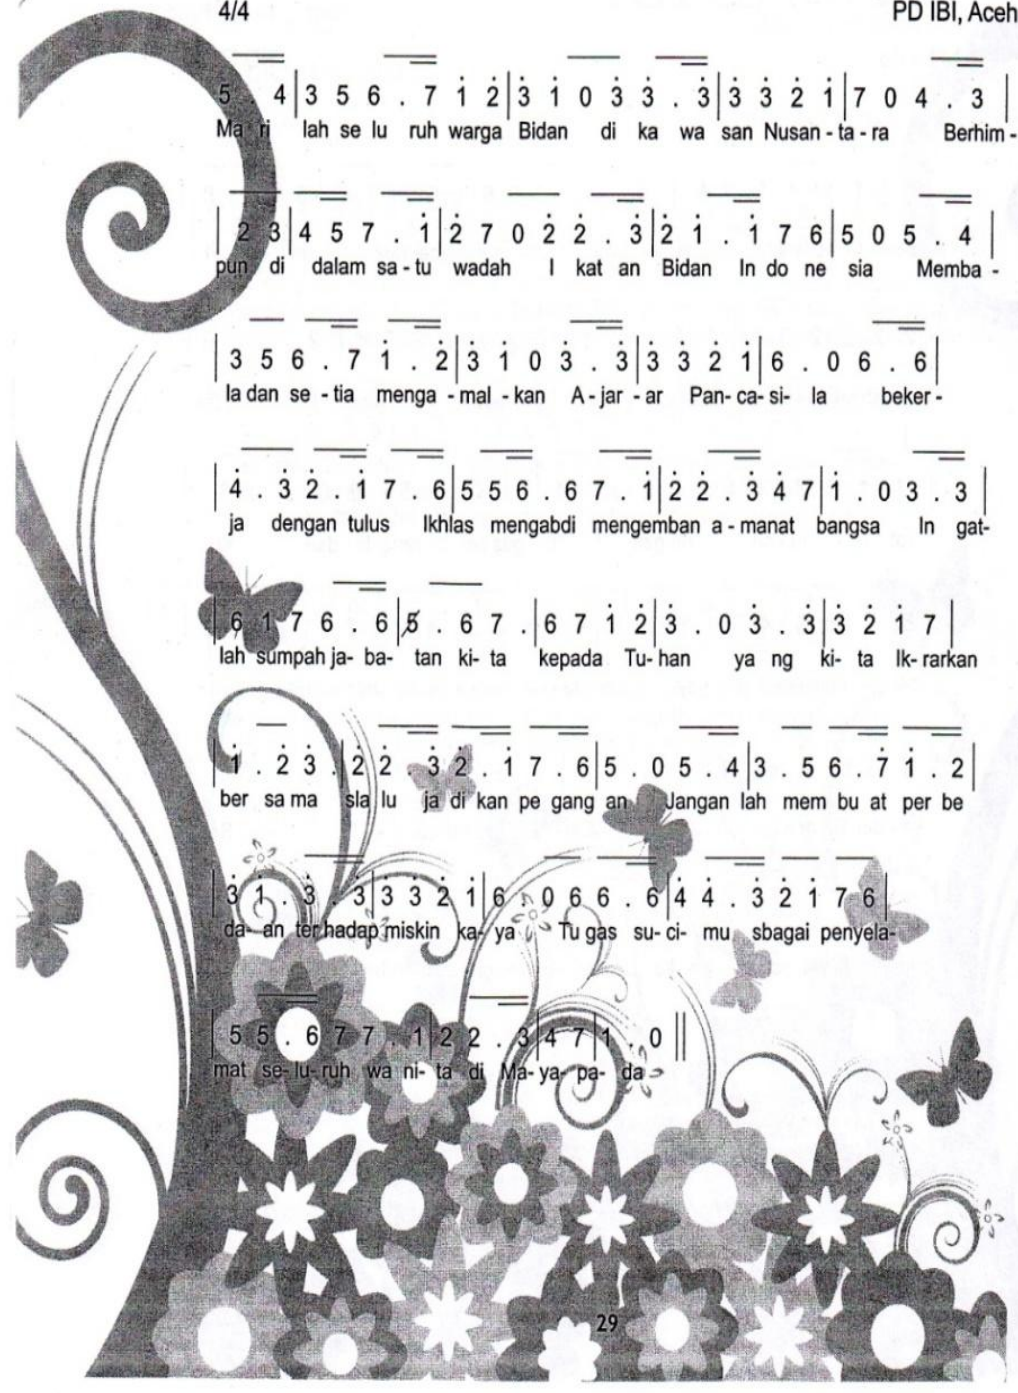 4/4 PD IBI, Aceh
5 . 4 | 3 5 6 . 7 1̇ 2̇ | 3̇ 1̇ 0 3̇ 3̇ . 3̇ | 3̇ 3̇ 2̇ 1̇ | 7 0 4 . 3 |
Ma ri lah se lu ruh warga Bidan di ka wa san Nusan - ta - ra Berhim -
| 2 3 | 4 5 7 . 1̇ | 2̇ 7 0 2̇ 2̇ . 3̇ | 2̇ 1̇ . 1̇ 7 6 | 5 0 5 . 4 |
pun di dalam sa - tu wadah I kat an Bidan In do ne sia Memba -
| 3 5 6 . 7 1̇ . 2̇ | 3̇ 1̇ 0 3̇ . 3̇ | 3̇ 3̇ 2̇ 1̇ | 6 . 0 6 . 6 |
la dan se - tia menga - mal - kan A - jar - ar Pan- ca- si- la beker -
| 4̇ . 3̇ 2̇ . 1̇ 7 . 6 | 5 5 6 . 6 7 . 1̇ | 2̇ 2̇ . 3̇ 4̇ 7 | 1̇ . 0 3̇ . 3̇ |
ja dengan tulus Ikhlas mengabdi mengemban a - manat bangsa In gat-
| 6 1 7 6 . 6 | 5 . 6 7 . | 6 7 1̇ 2̇ | 3̇ . 0 3̇ . 3̇ | 3̇ 2̇ 1̇ 7 |
lah sumpah ja- ba- tan ki- ta kepada Tu- han ya ng ki- ta Ik- rarkan
| 1̇ . 2̇ 3̇ . | 2̇ 2̇ . 3̇ 2̇ . 1̇ 7 . 6 | 5 . 0 5 . 4 | 3 . 5 6 . 7̇ 1̇ . 2̇ |
ber sa ma sla lu ja di kan pe gang an Jangan lah mem bu at per be
| 3̇ 1̇ . 3̇ . 3̇ | 3̇ 3̇ 2̇ 1̇ | 6 . 0 6 6 . 6 | 4̇ 4̇ . 3̇ 2̇ 1̇ 7 6 |
da- an ter hadap miskin ka- ya Tu gas su- ci- mu sbagai penyela-
| 5 5 . 6 7 7 . 1 | 2 2 . 3 | 4 7 | 1 . 0 ||
mat se- lu- ruh wa ni- ta di Ma- ya- pa- da
29